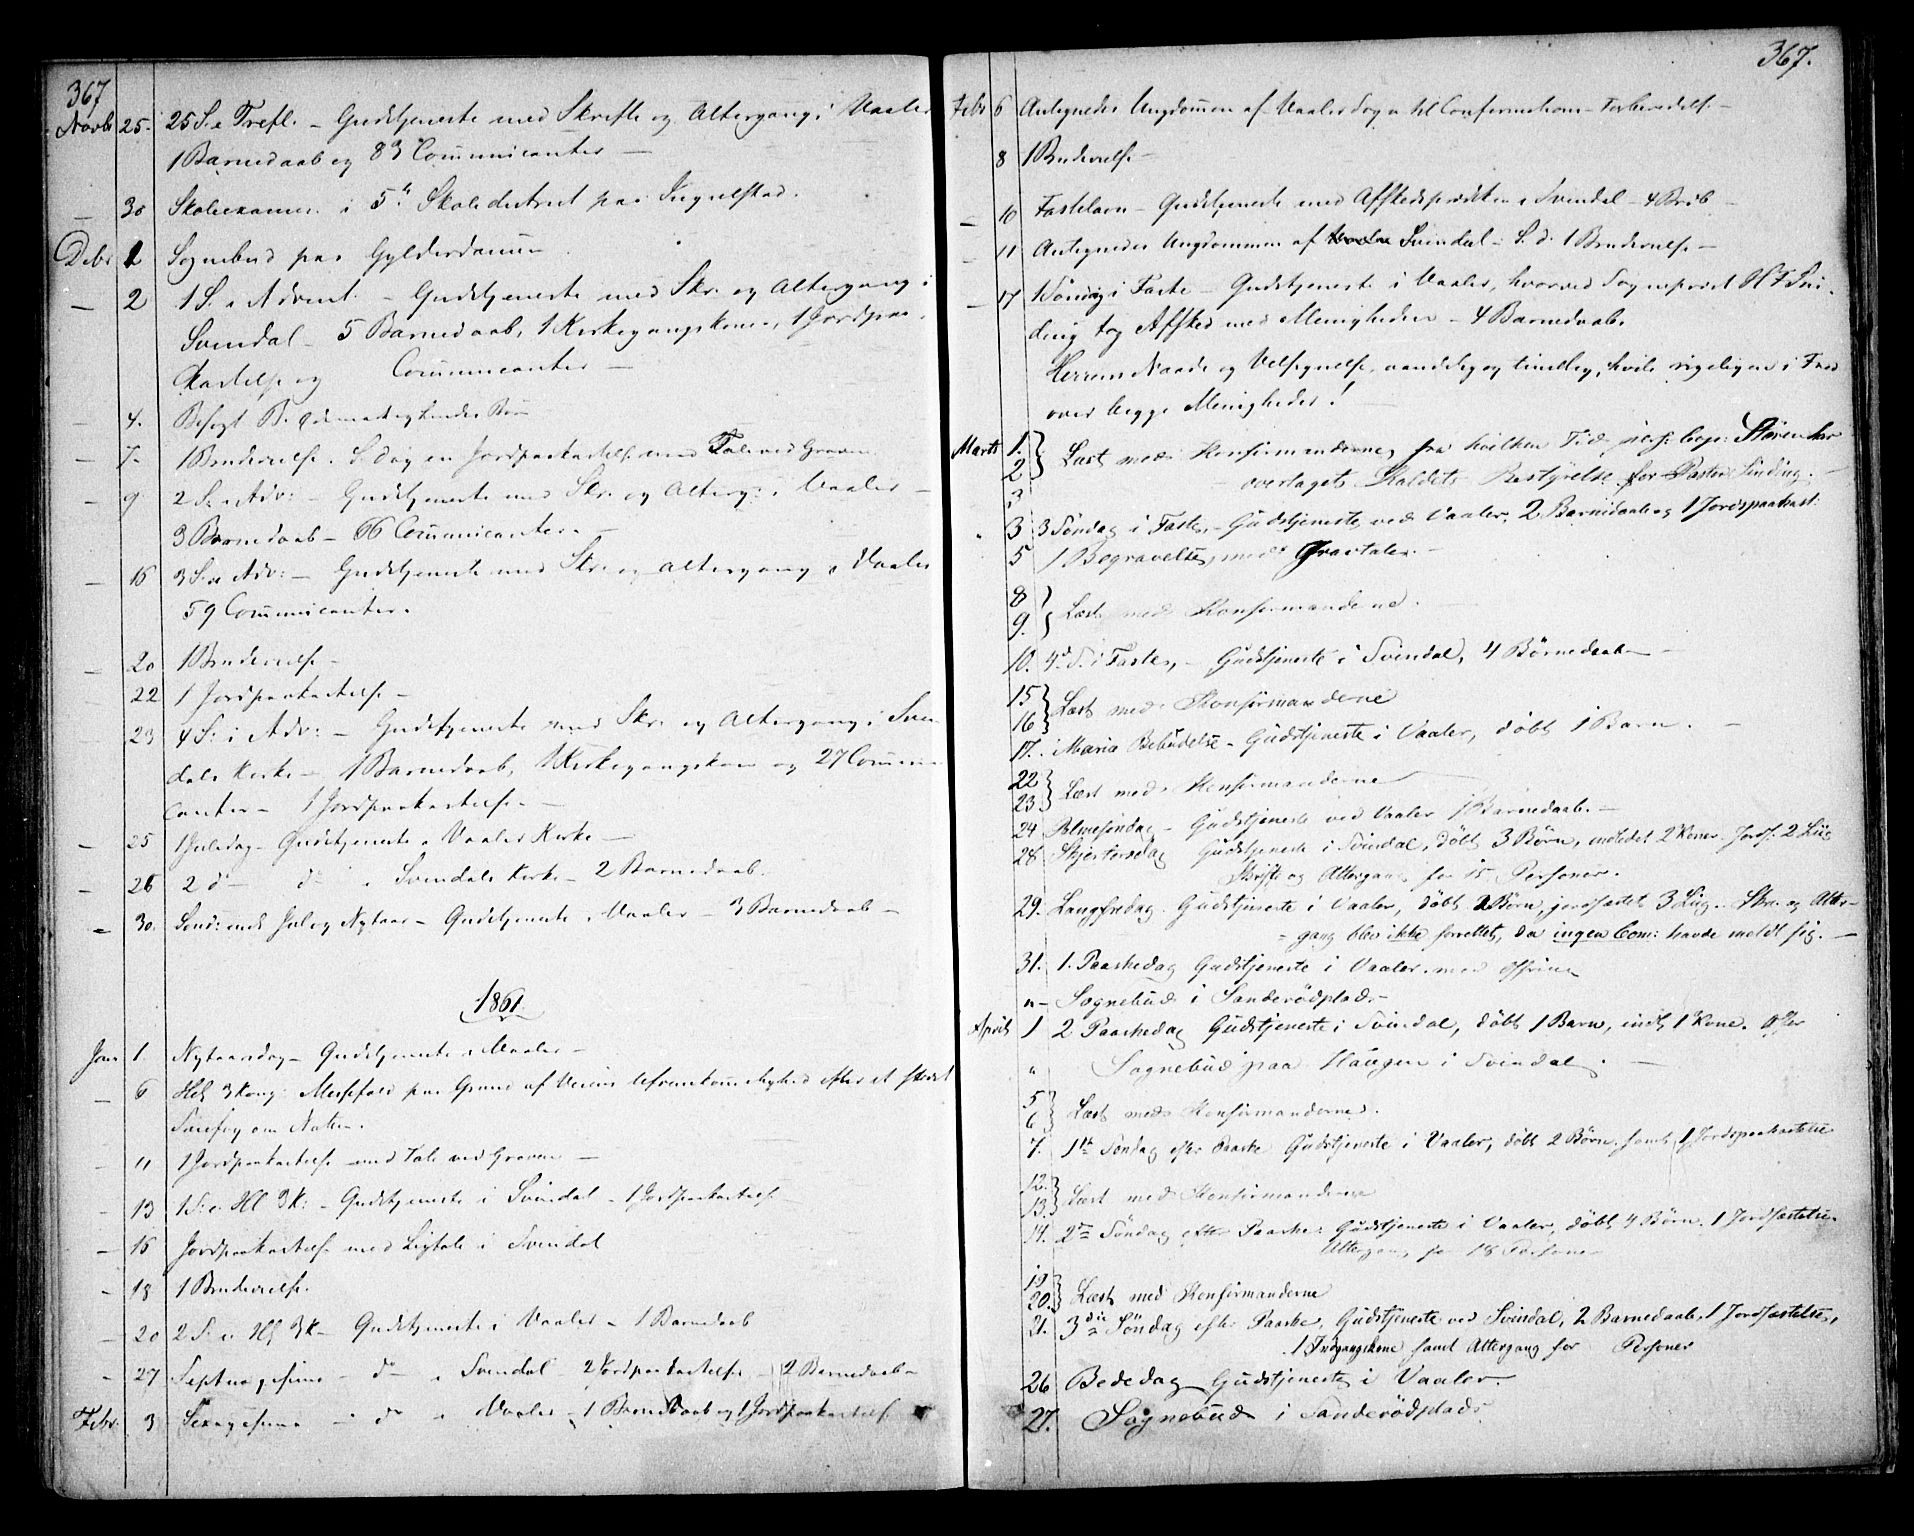 367
Novbr 25. 25 S. e. Trefl. – Gudstjeneste med Skrifte og Altergang i Vaaler
1 Barnedaab og 83 Communicanter –
– 30 Skoleexamen i 5te Skoledistrict paa
Debr 1 Sognebud paa
– 2 1 S. i Advent. – Gudstjeneste med Skr. og Altergang i
Svindal – 5 Barnedaab, 1 Kirkegangskone, 1 Jordpaa-
kastelse og Communicanter –
– 4. Besøgt
– 7. 1 Brudevielse. S. Dag en Jordpaakastelse med Tale ved Graven
– 9 2 S. i Adv: – Gudstjeneste med Skr. og Alterg: i Vaaler –
3 Barnedaab – 66 Communicanter. –
– 16 3 S. i Adv: – Gudstjeneste med Skr. og Altergang i Vaaler
59 Communicanter.
– 20 1 Brudevielse –
22 1 Jordpaakastelse –
23 4 S: i Adv: – Gudstjeneste med Skr. og Altergang i Svin-
dals Kirke – 1 Barnedaab, 1 Kirkegangskone og 27 Communi-
canter – 1 Jordpaakastelse. –
– 25 1 Juledag – Gudstjeneste i Vaaler Kirke –
– 26 2 d – do i Svindals Kirke – 2 Barnedaab.
– 30. Sønd: mell. Jul og Nytaar – Gudstjeneste i Vaaler – 3 Barnedaab –
1861.
Jan 1. Nytaarsdag – Gudstjeneste i Vaaler –
– 6 Hel. 3 Kong: Messefald paa Grund af Veiens Ufremkommelighed efter et stærkt
Snefog om Natten.
– 11 1 Jordpaakastelse med Tale ved Graven –
– 13 1 S. e. Hl 3 K: – Gudstjeneste i Svindal – 1 Jordpaakastelse
– 16 Jordpaakastelse med Ligtale i Svindal
– 18 1 Brudevielse.
– 20 2 S. e. Hl 3 K – Gudstjeneste i Vaaler – 1 Barnedaab
– 27 Septuagesima – do i Svindal 2 Jordpaakastelse – 2 Barnedaab –
Febr. 3 Sexagesima – do i Vaaler – 1 Barnedaab og 1 Jordpaakastelse
367.
Febr 6 Antegnedes Ungdommen af Vaaler Sogn til Confirmations-Forberedelse –
8 1 Brudevielse –
– 10 Fastelavn – Gudstjeneste med Afskedsprædiken i Svindal – 4 Brdb –
– 11 Antegnedes Ungdommen af Svindal – S. d. 1 Brudevielse –
– 17 1 Søndag i Faste – Gudstjeneste i Vaaler, hvorved Sogneprest Sin-
ding tog Afsked med Menigheden – 4 Barnedaab.
Herrens Naade og Velsignelse, aandelig og timelig, hvile rigeligen i Fred
over begge Menigheder!
Marts 1. 2 Læst med Konfirmanderne, fra hvilken Tid pers: Cap: Størenhar
– overtaget Kaldets Bestyrelse for Pastor Sinding. –
3
3 3 Søndag i Faste, – Gudstjeneste ved Vaaler, 2 Barnedaab og 1 Jordpaakast:
5 1 Begravelse, med Gravtale. –
8 9. Læst med Konfirmanderne.
10. 4de S. i Faste, – Gudstjeneste i Svindal, 4 Børnedaab –
15 16 Læst med Konfirmanderne
17. Maria Bebudelse – Gudstjeneste i Vaaler, døbt 1 Barn. –
22 23 Læst med Konfirmanderne
24 Palmesøndag – Gudstjeneste ved Vaaler 1 Barnedaab. –
28 Skjertorsdag Gudstjeneste i Svindal, døbt 3 Børn, indledet 2 Koner. Jordf. 2 Liig
Skrifte og Altergang for 15 Personer.
29. Langfredag. Gudstjeneste i Vaaler, døbt 2 Børn, jordfæstet 3 Liig. Skr. og Alter-
gang blev ikke forrettet, da ingen Com: havde meldt sig. –
31. 1. Paaskedag Gudstjeneste i Vaaler. med Offring
" – Sognebud i Sanderødplads –
April 1 2 Paaskedag Gudstjeneste i Svindal, døbt 1 Barn, indl 1 Kone. Offer
" Sognebud paa Haugen i Svindal. –
5 6 Læst med Konfirmanderne.
7. 1ste Søndag efter Paaske Gudstjeneste i Vaaler, døbt 2 Børn, samt 1 Jordpaakastelse
12. 13. Læst med Konfirmanderne
14. 2den Søndag efter Paaske: Gudstjeneste i Vaaler, døbt 4 Børn. 1 Jordfæstelse.
Altergang for 18 Personer
19 20. Læst med Konfirmanderne
21. 3die Søndag efter Paaske, Gudstjeneste ved Svindal, 2 Barnedaab, 1 Jordfæstelse,
1 Indgangskone samt Altergang for Personer
26 Bededag Gudstjeneste i Vaaler.
27. Sognebud i Sanderødplads